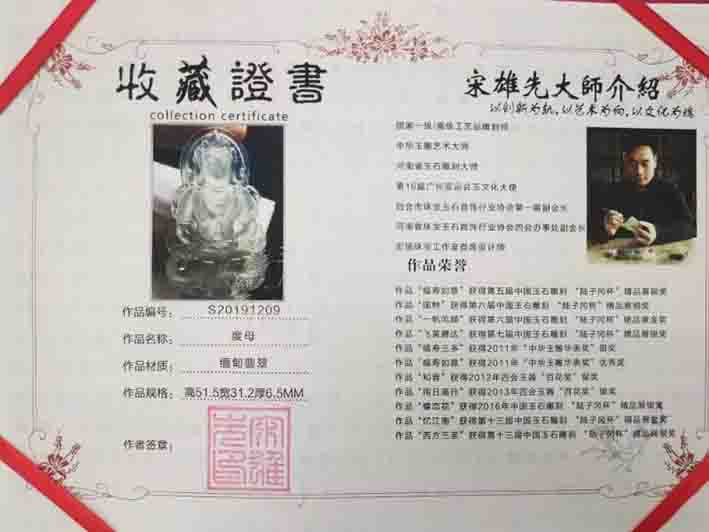 收藏證書
collection certificate
作品编号: S20191209
作品名称: 度母
作品材质: 缅甸翡翠
作品规格: 高51.5宽31.2厚6.5MM
作者签章:
宋雄先大師介紹
以创新为轨,以艺术为向,以文化为魂
国家一级/高级工艺品雕刻师
中华玉雕艺术大师
河南省玉石雕刻大师
第16届广州亚运会玉文化大使
四会市珠宝玉石首饰行业协会第一届副会长
河南省珠宝玉石首饰行业协会四会办事处副会长
宏瑞珠宝工作室首席设计师
作品荣誉
作品“福寿如意”获得第五届中国玉石雕刻“陆子冈杯”精品展银奖
获得第六届中国玉石雕刻“陆子冈杯”精品展铜奖
作品“一帆风顺”获得第六届中国玉石雕刻“陆子冈杯”精品展金奖
作品“飞黄腾达”获得第七届中国玉石雕刻“陆子冈杯”精品展银奖
作品“福寿三多”获得2011年“中华玉雕华表奖”银奖
作品“福寿如意”获得2011年“中华玉雕华表奖”优秀奖
作品“知音”获得2012年四会玉器“百花奖”银奖
作品“指日高升”获得2013年四会玉器“百花奖”银奖
作品“蝶恋花”获得2016年中国玉石雕刻“陆子冈杯”精品展银奖
作品“忆江南”获得第十三届中国玉石雕刻“陆子冈杯”精品展金奖
作品“西方三圣”获得第十三届中国玉石雕刻“陆子冈杯”精品展银奖